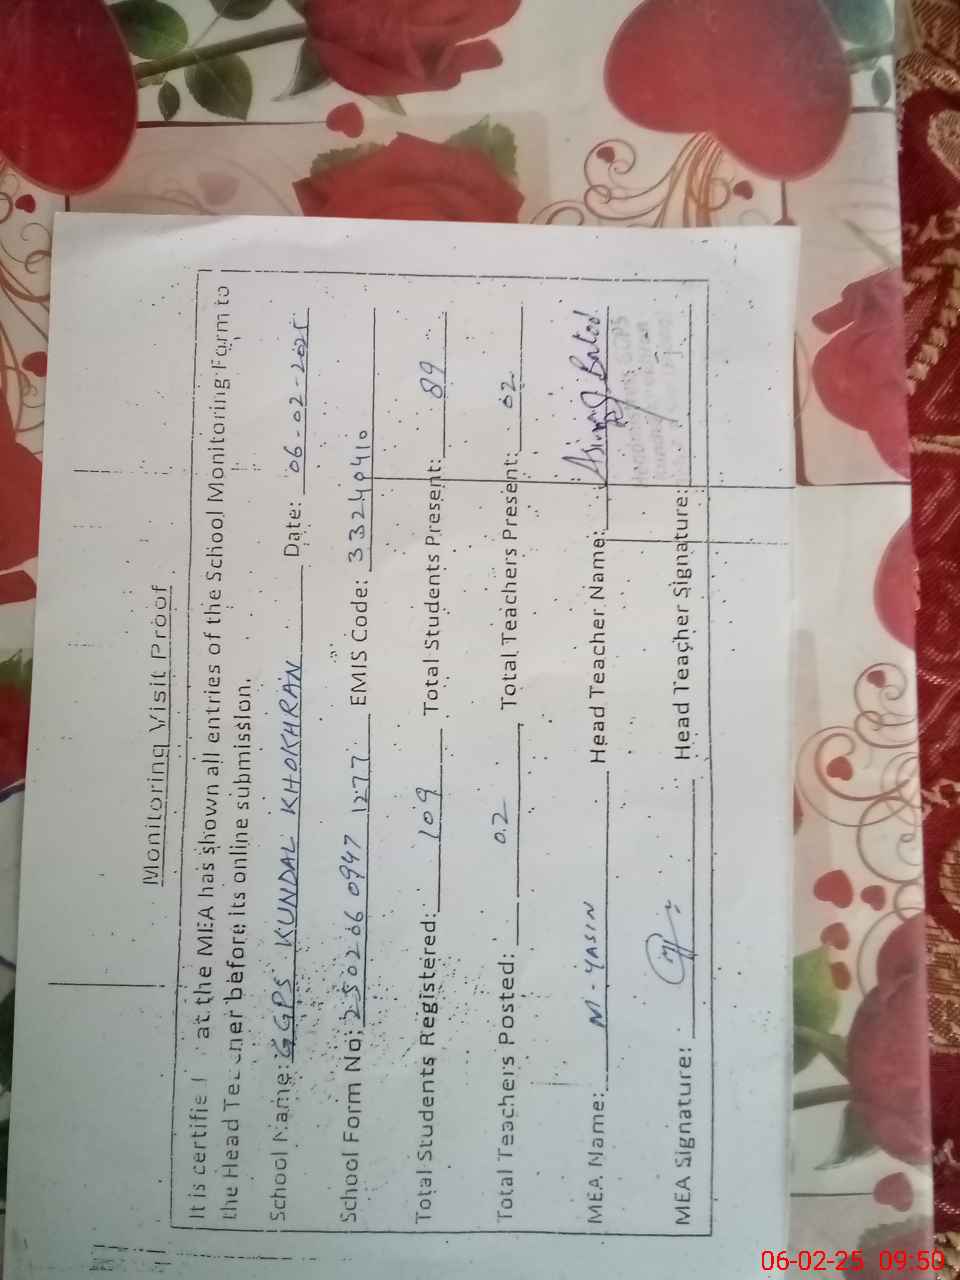 Monitoring Visit Proof
It is certifie at the MEA has shown all entries of the School Monitoring Form to
the Head Te ner before its online submission.
School Name: GGPS KUNDAL KHOKHRAN Date: 06-02-2025
School Form No: 250266 0947 1277 EMIS Code: 33240410
Total Students Registered: 109 Total Students Present: 89
Total Teachers Posted: 02 Total Teachers Present: 02
MEA Name: M-YASIN Head Teacher Name:
MEA Signature: Head Teacher Signature:
06-02-25 09:50